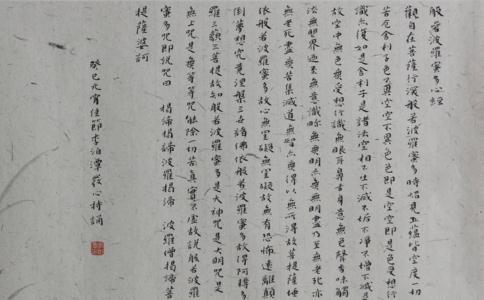 般若波羅蜜多心經
觀自在菩薩行深般若波羅蜜多時照見五蘊皆空度一切
苦厄舍利子色不異空空不異色色即是空空即是色受想行
識亦復如是舍利子是諸法空相不生不滅不垢不淨不增不減是
故空中無色無受想行識無眼耳鼻舌身意無色聲香味觸
法無眼界乃至無意識界無無明亦無無明盡乃至無老死亦
無老死盡無苦集滅道無智亦無得以無所得故菩提薩埵
依般若波羅蜜多故心無罣礙無罣礙故無有恐怖遠離顛
倒夢想究竟涅槃三世諸佛依般若波羅蜜多故得阿耨多
羅三藐三菩提故知般若波羅蜜多是大神咒是大明咒是
無上咒是無等等咒能除一切苦真實不虛故說般若波羅
蜜多咒即說咒曰 揭諦揭諦波羅揭諦 波羅僧揭諦菩
提薩婆訶
癸巳元宵佳節李泊潭心持誦